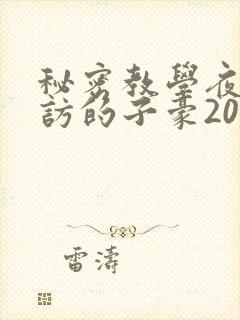 秘密教學夜
訪的子豪20
雷濤